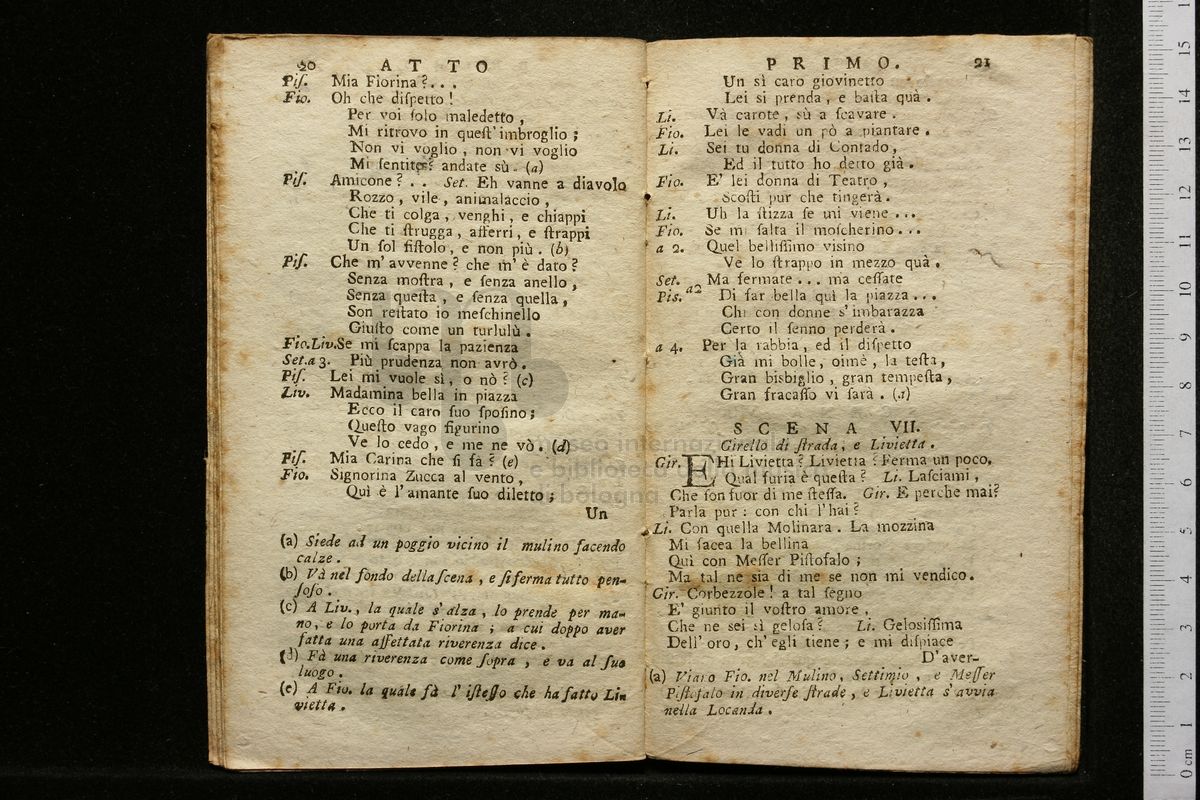 20 ATTO
Piſ. Mia Fiorina?...
Fio. Oh che diſpetto!
Per voi ſolo maledetto,
Mi ritrovo in queſt'imbroglio;
Non vi voglio, non vi voglio
Mi ſentite? andate sù. (a)
Piſ. Amicone? .. Set. Eh vanne a diavolo
Rozzo, vile, animalaccio,
Che ti colga, venghi, e chiappi
Che ti ſtrugga, afferri, e ſtrappi
Un ſol fiſtolo, e non più. (b)
Piſ. Che m'avvenne? che m'è dato?
Senza moſtra, e ſenza anello,
Senza queſta, e ſenza quella,
Son reſtato io meſchinello
Giuſto come un turlulù.
Fio.Liv.Se mi ſcappa la pazienza
Set.a 3. Più prudenza non avrò.
Piſ. Lei mi vuole sì, o nò? (c)
Liv. Madamina bella in piazza
Ecco il caro ſuo ſpoſino;
Queſto vago figurino
Ve lo cedo, e me ne vò. (d)
Piſ. Mia Carina che ſi fà? (e)
Fio. Signorina Zucca al vento,
Quì è l'amante ſuo diletto;
Un
(a) Siede ad un poggio vicino il mulino facendo
calze.
(b) Và nel fondo della ſcena, e ſi ferma tutto pen-
ſoſo.
(c) A Liv., la quale s'alza, lo prende per ma-
no, e lo porta da Fiorina; a cui doppo aver
fatta una affettata riverenza dice.
(d) Fà una riverenza come ſopra, e va al ſuo
luogo.
(e) A Fio. la quale fà l'iſteſſo che ha fatto Li-
vietta.
PRIMO. 21
Un sì caro giovinetto
Lei si prenda, e baſta quà.
Li. Và carote, sù a ſcavare.
Fio. Lei le vadi un pò a piantare.
Li. Sei tu donna di Contado,
Ed il tutto ho detto già.
Fio. E' lei donna di Teatro,
Scoſti pur che tingerà.
Li. Uh la ſtizza ſe mi viene...
Fio. Se mi ſalta il moſcherino...
a 2. Quel belliſſimo viſino
Ve lo ſtrappo in mezzo quà.
Set. Ma fermate... ma ceſſate
Pis. a2 Di far bella quì la piazza...
Chi con donne s'imbarazza
Certo il ſenno perderà.
a 4. Per la rabbia, ed il diſpetto
Già mi bolle, oimè, la teſta,
Gran bisbiglio, gran tempeſta,
Gran fracaſſo vi ſarà. (a)
SCENA VII.
Girello di ſtrada, e Livietta.
Gir. EHi Livietta? Livietta? Ferma un poco.
Qual furia è queſta? Li. Laſciami,
Che ſon fuor di me ſteſſa. Gir. E perche mai?
Parla pur: con chi l'hai?
Li. Con quella Molinara. La mozzina
Mi facea la bellina
Quì con Meſſer Piſtofalo;
Ma tal ne sia di me se non mi vendico.
Gir. Corbezzole! a tal ſegno
E' giunto il voſtro amore,
Che ne sei sì geloſa? Li. Geloſiſſima
Dell'oro, ch'egli tiene; e mi diſpiace
D'aver-
(a) Viano Fio. nel Mulino, Settimio, e Meſſer
Piſtofalo in diverſe ſtrade, e Livietta s'avvia
nella Locanda.
museo internazionale
e biblioteca della musica
bologna
15
14
13
12
11
10
9
8
7
6
5
4
3
2
1
0 cm